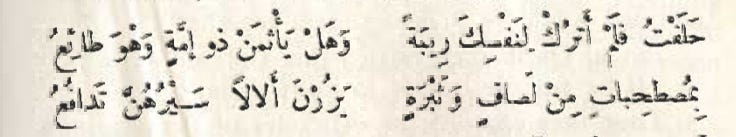 حَلَفْتُ فَلَمْ أَتْرُكْ لِنَفْسِكَ رِيبَةً    وَهَلْ يَأْثَمَنْ ذو إِمَّةٍ وَهْوَ طائِعُ
بِمُصطَحِباتٍ مِنْ لَصافٍ وَثَبْرَةٍ    يَزُرْنَ أَلالاً سَيْرُهُنَّ تَدافُعُ